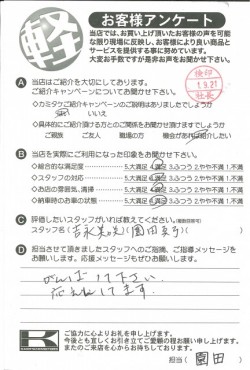 軽
お客様アンケート
当店では、お買い上げ頂いたお客様の声を可能
な限り現場に反映し、お客様により良い商品と
サービスを提供する事に努めています。
大変お手数ですが是非お声をお聞かせ下さい。
検印
1.9.21
社長
A 当店はご紹介を大切にしております。
ご紹介キャンペーンについてお聞かせ下さい。
◇カミタケご紹介キャンペーンのご説明はありましたでしょうか
はい いいえ
◇具体的にご紹介頂ける方とのご関係をお聞かせ頂けますでしょうか
ご親族 ご友人 職場の方 機会があれば紹介したい
B 当店を実際にご利用になった印象をお聞かせ下さい。
◇総合的な満足度 5.大満足 4.満足 3.ふつう 2.やや不満 1.不満
◇スタッフの対応 5.大満足 4.満足 3.ふつう 2.やや不満 1.不満
◇お店の雰囲気、清掃 5.大満足 4.満足 3.ふつう 2.やや不満 1.不満
◇納車時のお車の状態 5.大満足 4.満足 3.ふつう 2.やや不満 1.不満
C 評価したいスタッフがいれば教えてください。(複数回答可)
スタッフ名(吉永 )(園田 )
D 担当させて頂きましたスタッフへのご指摘、ご指導メッセージを
お願いします。応援メッセージもぜひお願いします。
がんばって下さい。
応援してます。
K
ご協力に心よりお礼を申し上げます。
今後とも宜しくお引き立てご愛顧の程お願い申し上げます。
またのご来店を心からお待ちしております。
担当(園田)